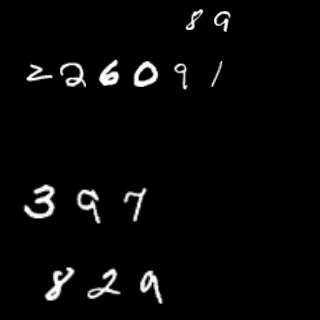 89
226091
397
829